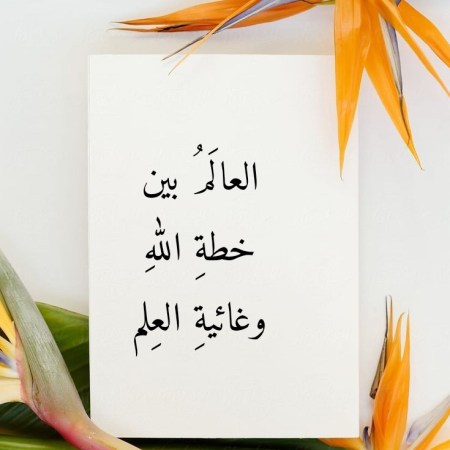 العالَمُ بين
خطةِ اللهِ
وغائيةِ العِلم